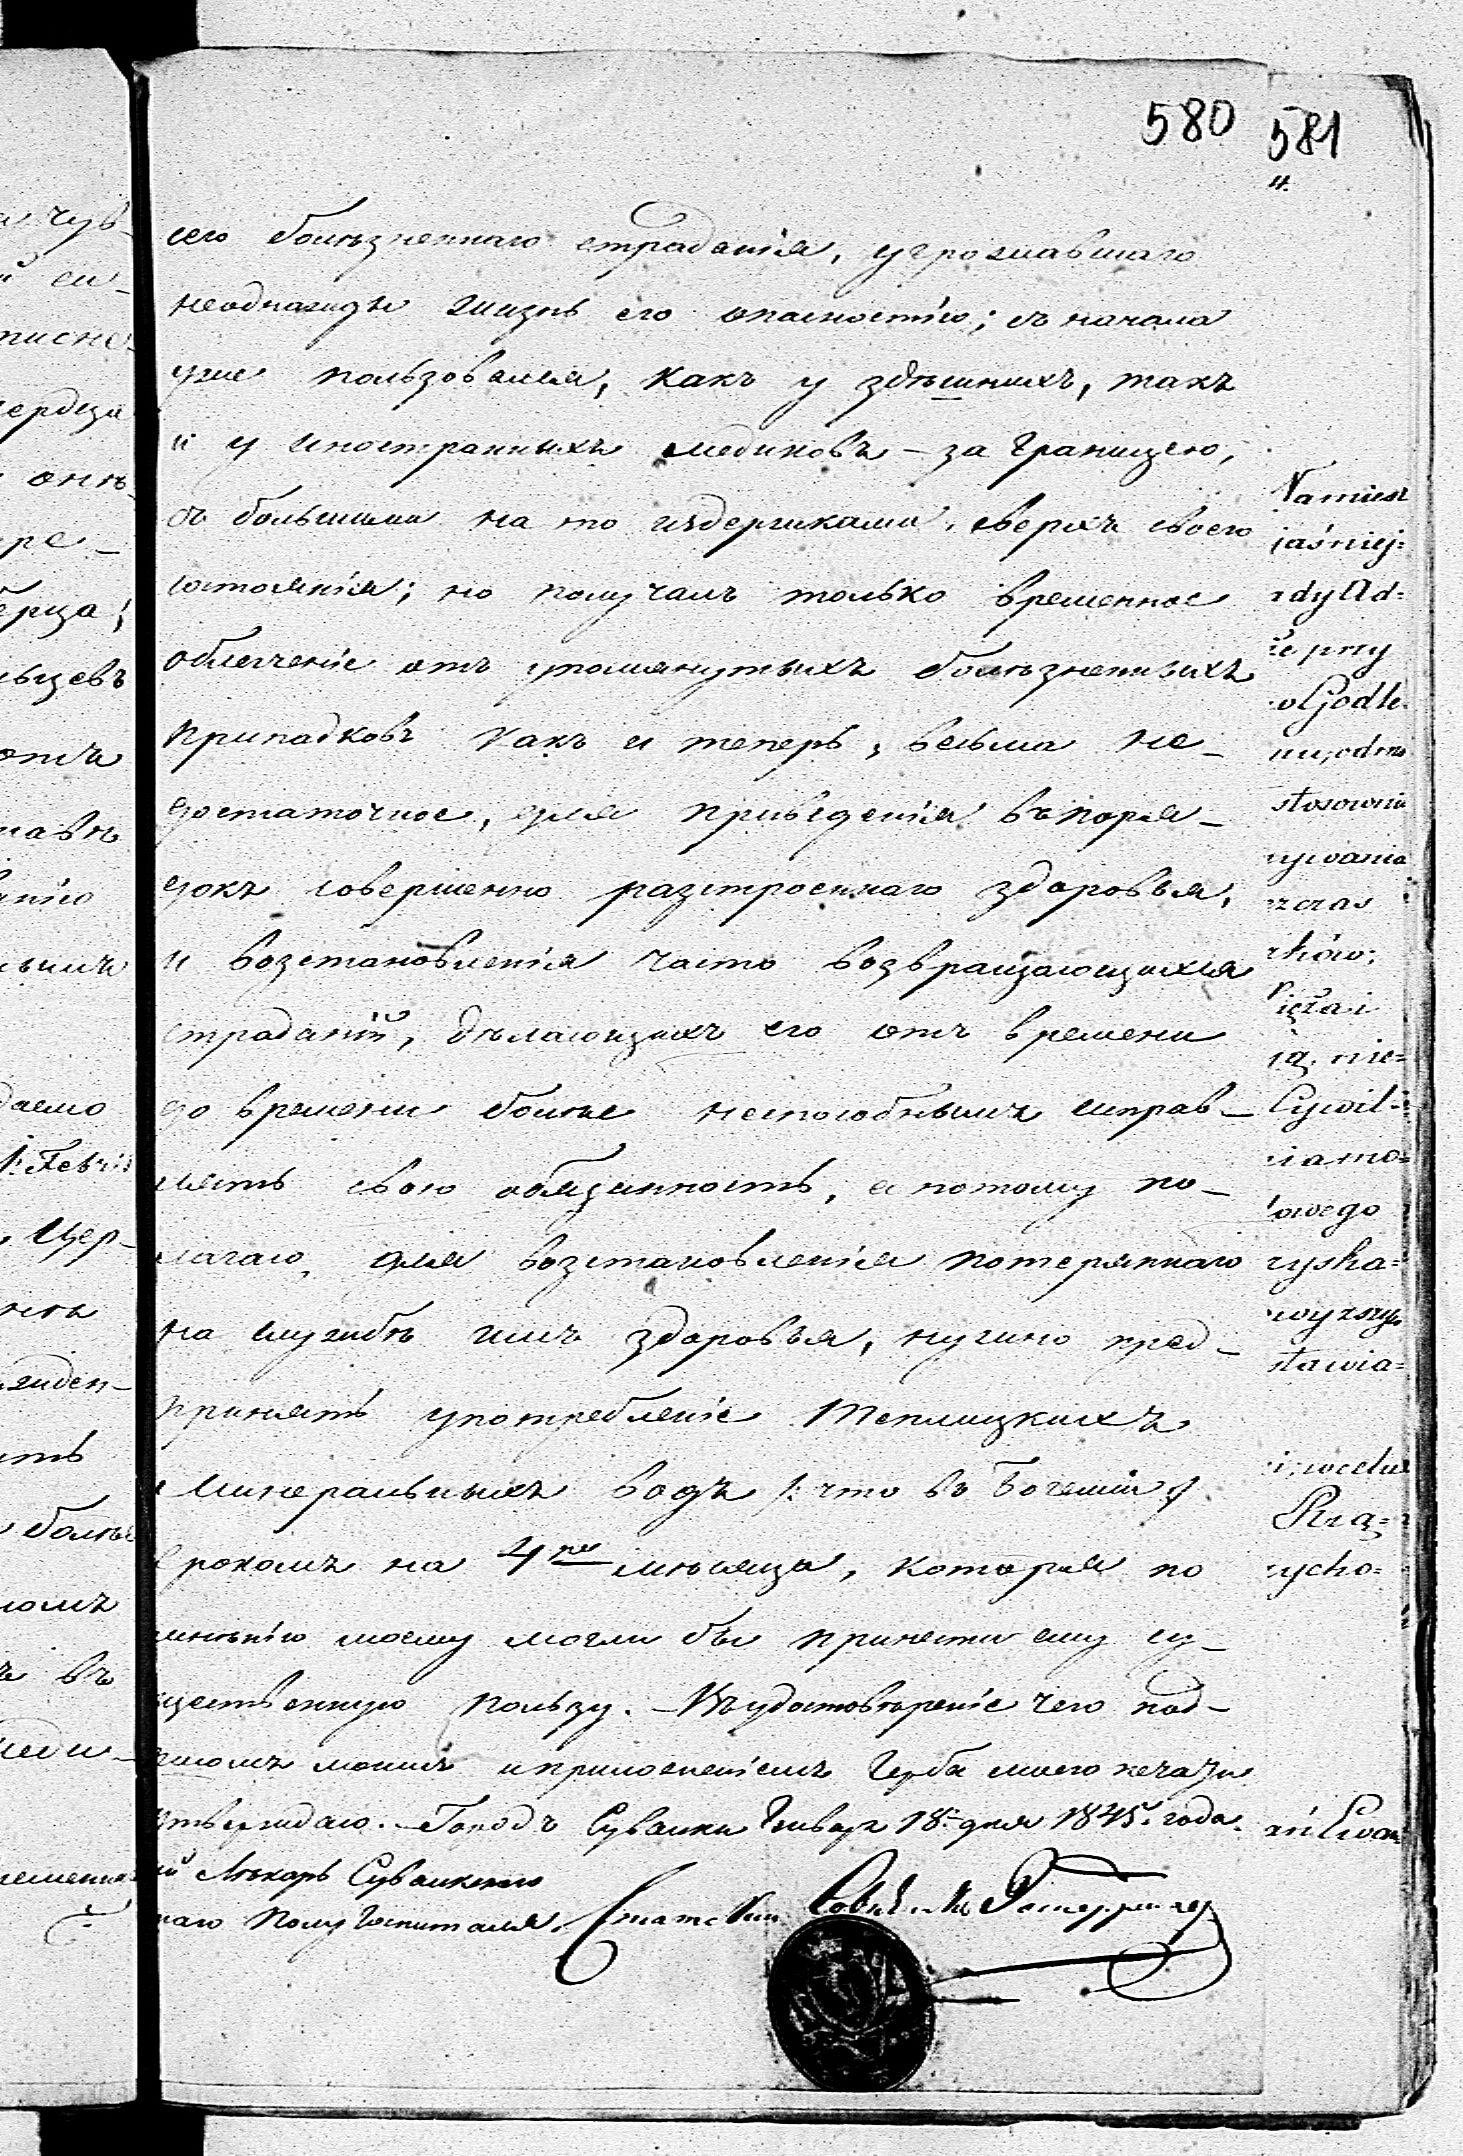 580 581
4.
сего болѣзненнаго страданія, угрожавшаго
неоднажды жизнь его опасностію; съ начала
уже пользовался, какъ у здѣшнихъ, такъ
и у иностранныхъ медиковъ – за границею,
съ большими на то издержками, сверхъ своего
состоянія; но получалъ только временное
облегченіе отъ упомянутыхъ болѣзненныхъ
припадковъ какъ и теперь, весьма не-
достаточное, для приведенія въ поря-
докъ совершенно разстроеннаго здоровья,
и возстановленія часто возвращающихся
страданій, дѣлающихъ его отъ времени
до времени болѣе неспособнымъ справ-
лять свою обязанность, а потому по-
лагаю, для возстановленія потеряннаго
на службѣ имъ здоровья, нужно пред-
принять употребленіе Теплицкихъ
минеральныхъ водъ /: что въ Богеміи :/
срокомъ на 4ре мѣсяца, которыя по
мнѣнію моему могли бы принести ему су-
щественную пользу. – Въ удостовѣреніе чего под-
писомъ моимъ и приложеніемъ Герба моего печати
утверждаю. – Городъ Сувалки Январ 18 дня 1845. года.
Лѣкарь Сувалкскаго
наго Полугоспиталя, Статскій Совѣт
чув-
си-
писне-
сердца
онѣ-
ре-
отъ
Цер-
жден-
болѣе
въ
меди-
Namiest
jaśniej=
rdy Ad=
że przy
Godle
nu, odmo
stosownie
ywania
rczas
rków;
ją, nie=
Cywil=
iamo=
łowego
zyska=
wyższy
stawia=
i, w celu
Prą=
zycho=